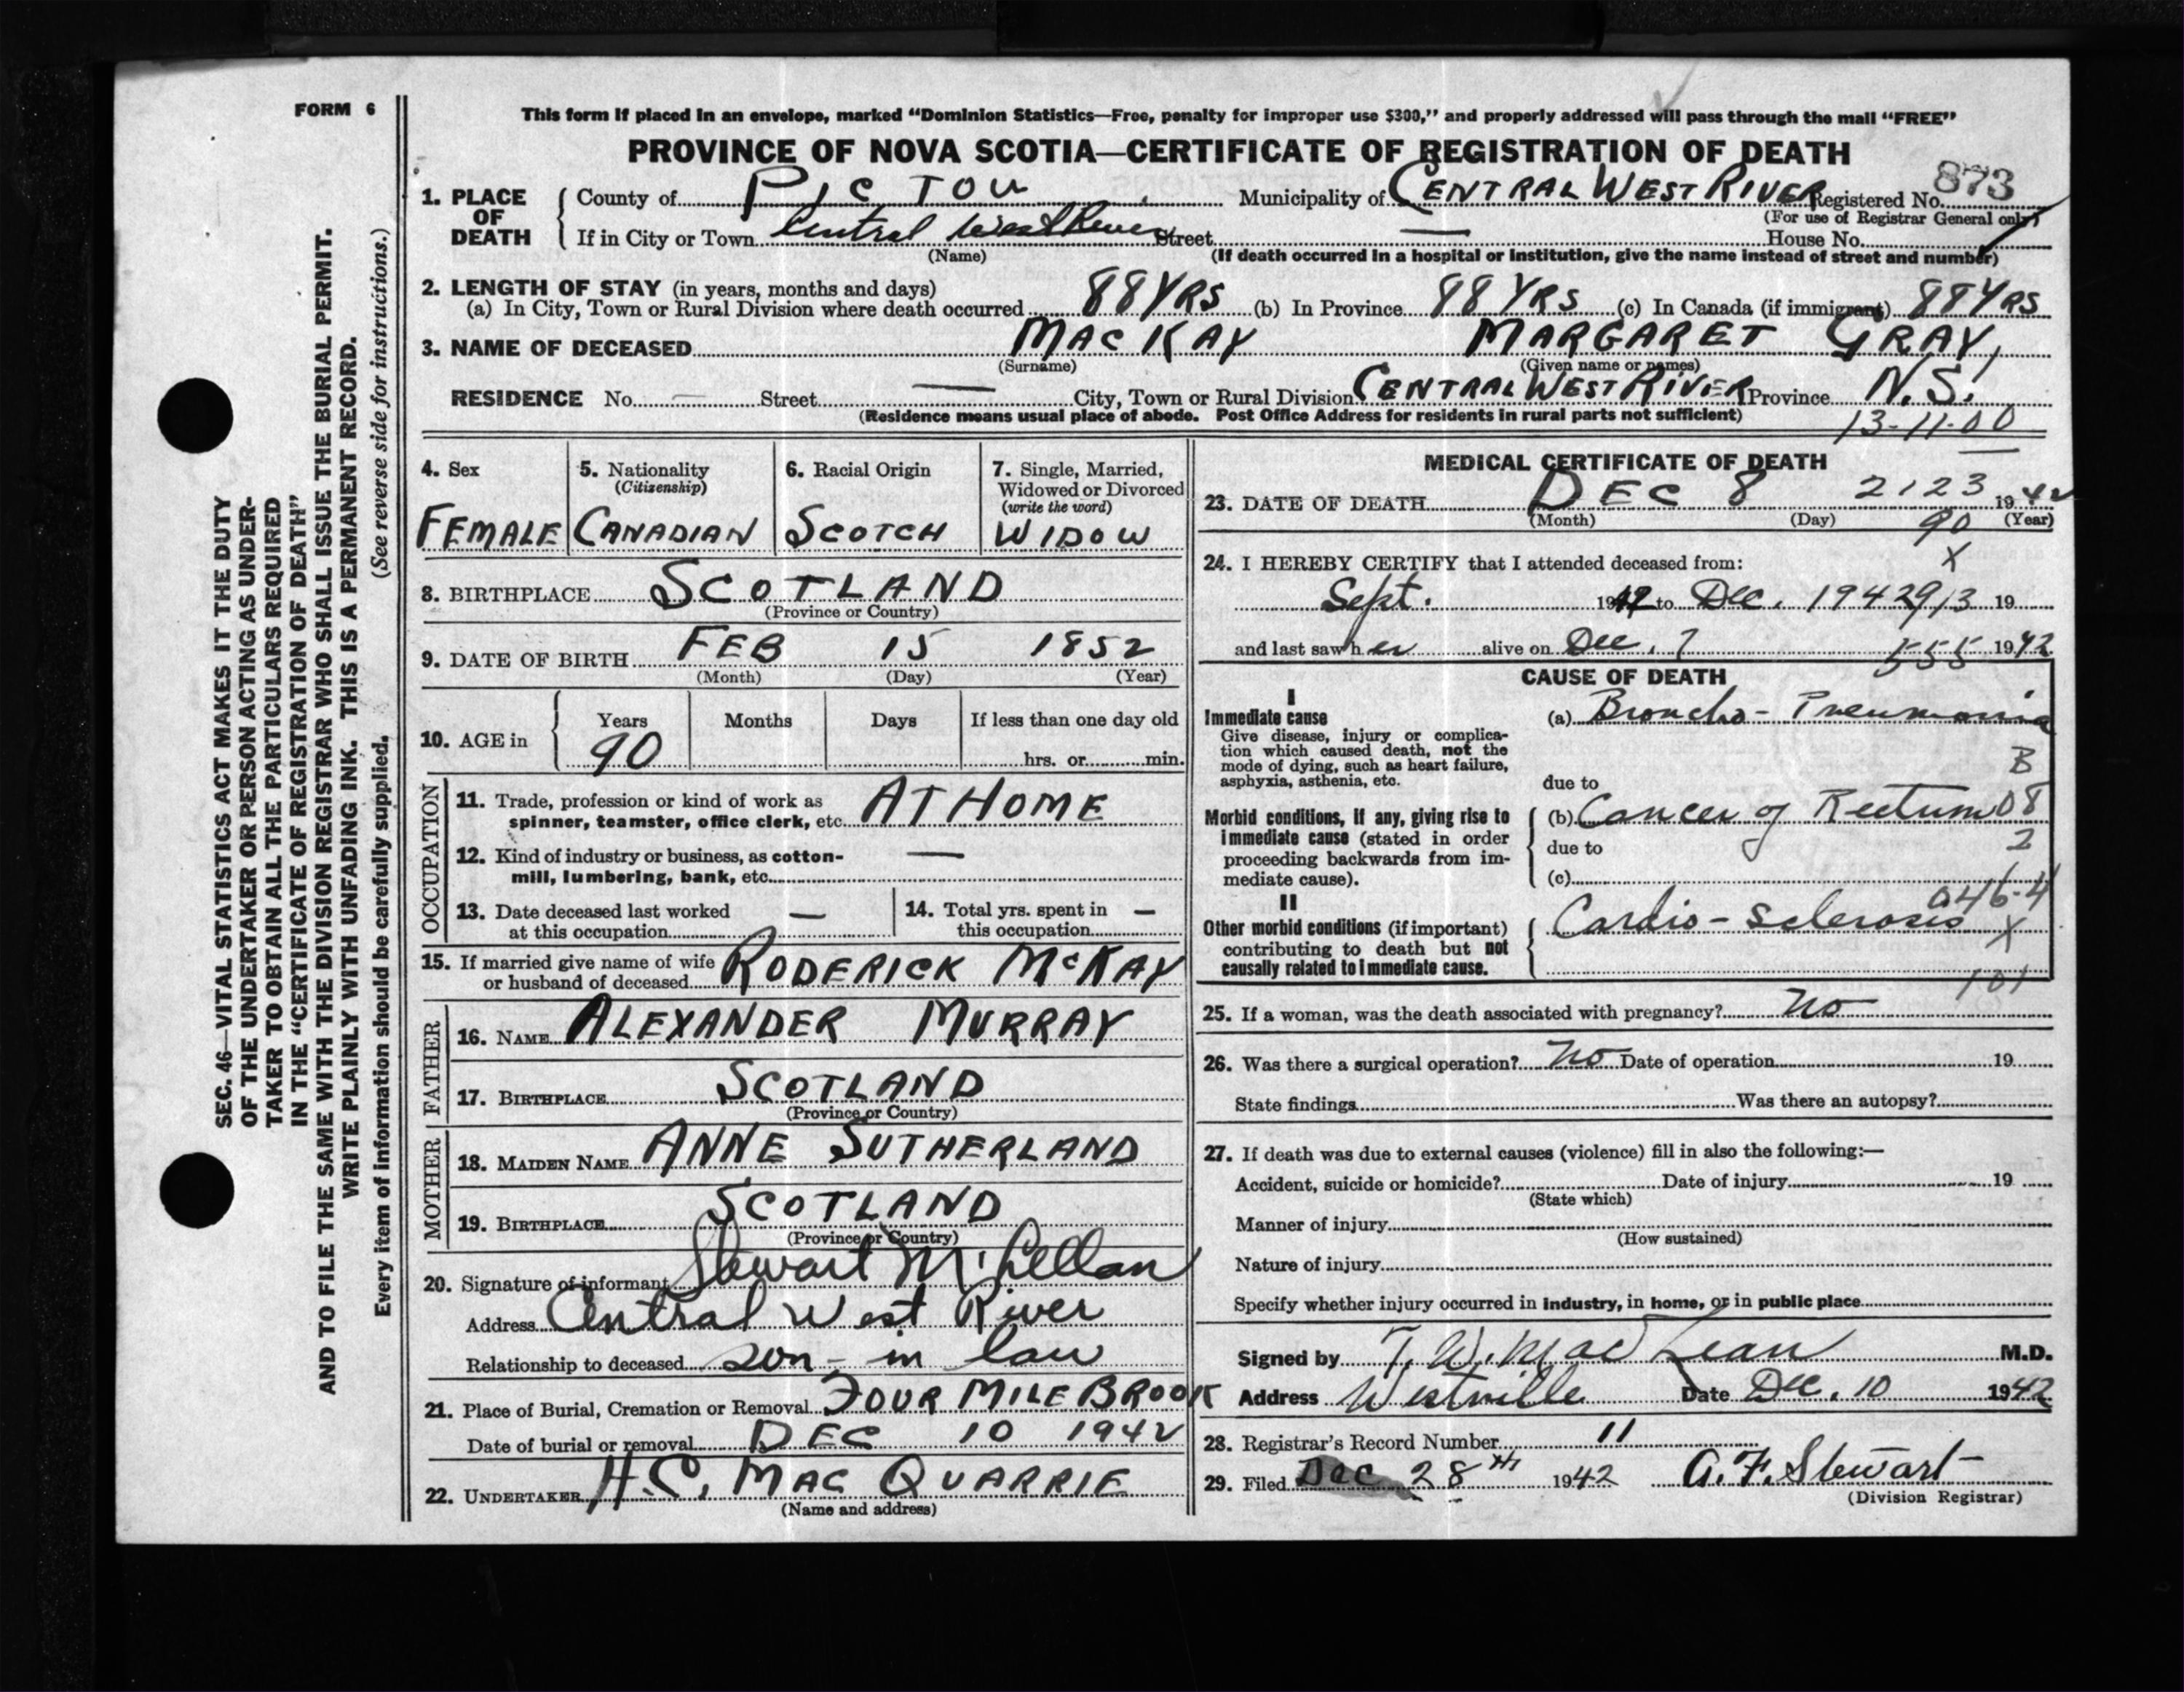 FORM 6
This form if placed in an envelope, marked "Dominion Statistics—Free, penalty for improper use $300," and properly addressed will pass through the mail "FREE"
PROVINCE OF NOVA SCOTIA—CERTIFICATE OF REGISTRATION OF DEATH
873
1. PLACE OF DEATH
County of PICTOU Municipality of CENTRAL WEST RIVER Registered No.
(For use of Registrar General only)
If in City or Town Central West River Street — House No.
(Name) (If death occurred in a hospital or institution, give the name instead of street and number)
2. LENGTH OF STAY (in years, months and days)
(a) In City, Town or Rural Division where death occurred 88 YRS (b) In Province 88 YRS (c) In Canada (if immigrant) 88 YRS
3. NAME OF DECEASED MACKAY MARGARET GRAY
(Surname) (Given name or names)
RESIDENCE No. — Street — City, Town or Rural Division CENTRAL WEST RIVER Province N.S.
(Residence means usual place of abode. Post Office Address for residents in rural parts not sufficient)
13-11-00
4. Sex
FEMALE
5. Nationality
(Citizenship)
CANADIAN
6. Racial Origin
SCOTCH
7. Single, Married,
Widowed or Divorced
(write the word)
WIDOW
8. BIRTHPLACE SCOTLAND
(Province or Country)
9. DATE OF BIRTH FEB 15 1852
(Month) (Day) (Year)
10. AGE in
Years Months Days If less than one day old
90 hrs. or min.
OCCUPATION
11. Trade, profession or kind of work as
spinner, teamster, office clerk, etc. AT HOME
12. Kind of industry or business, as cotton-
mill, lumbering, bank, etc. —
13. Date deceased last worked
at this occupation —
14. Total yrs. spent in
this occupation —
15. If married give name of wife
or husband of deceased RODERICK McKAY
FATHER
16. NAME ALEXANDER MURRAY
17. BIRTHPLACE SCOTLAND
(Province or Country)
MOTHER
18. MAIDEN NAME ANNE SUTHERLAND
19. BIRTHPLACE SCOTLAND
(Province or Country)
20. Signature of informant Stewart McLellan
Address Central West River
Relationship to deceased son-in law
21. Place of Burial, Cremation or Removal FOUR MILE BROOK
Date of burial or removal DEC 10 1942
22. UNDERTAKER H.C. MACQUARRIE
(Name and address)
MEDICAL CERTIFICATE OF DEATH
23. DATE OF DEATH DEC 8 2123 1942
(Month) (Day) (Year)
90
X
24. I HEREBY CERTIFY that I attended deceased from:
Sept. 1942 to Dec. 1942 913 19
and last saw her alive on Dec. 7 555 1942
CAUSE OF DEATH
I
Immediate cause
Give disease, injury or complica-
tion which caused death, not the
mode of dying, such as heart failure,
asphyxia, asthenia, etc.
(a) Broncho-Pneumonia
B
due to
Morbid conditions, if any, giving rise to
immediate cause (stated in order
proceeding backwards from im-
mediate cause).
(b) Cancer of Rectum 08
due to 2
(c)
046-4
II
Other morbid conditions (if important)
contributing to death but not
causally related to immediate cause.
Cardio-sclerosis X
101
25. If a woman, was the death associated with pregnancy? No
26. Was there a surgical operation? No Date of operation 19
State findings Was there an autopsy?
27. If death was due to external causes (violence) fill in also the following:—
Accident, suicide or homicide? Date of injury 19
(State which)
Manner of injury
(How sustained)
Nature of injury
Specify whether injury occurred in industry, in home, or in public place
Signed by T. W. MacLean M.D.
Address Westville Date Dec. 10 1942
28. Registrar's Record Number 11
29. Filed Dec 28th 1942 A. F. Stewart
(Division Registrar)
SEC. 46—VITAL STATISTICS ACT MAKES IT THE DUTY
OF THE UNDERTAKER OR PERSON ACTING AS UNDER-
TAKER TO OBTAIN ALL THE PARTICULARS REQUIRED
IN THE "CERTIFICATE OF REGISTRATION OF DEATH"
AND TO FILE THE SAME WITH THE DIVISION REGISTRAR WHO SHALL ISSUE THE BURIAL PERMIT.
WRITE PLAINLY WITH UNFADING INK. THIS IS A PERMANENT RECORD.
Every item of information should be carefully supplied. (See reverse side for instructions.)